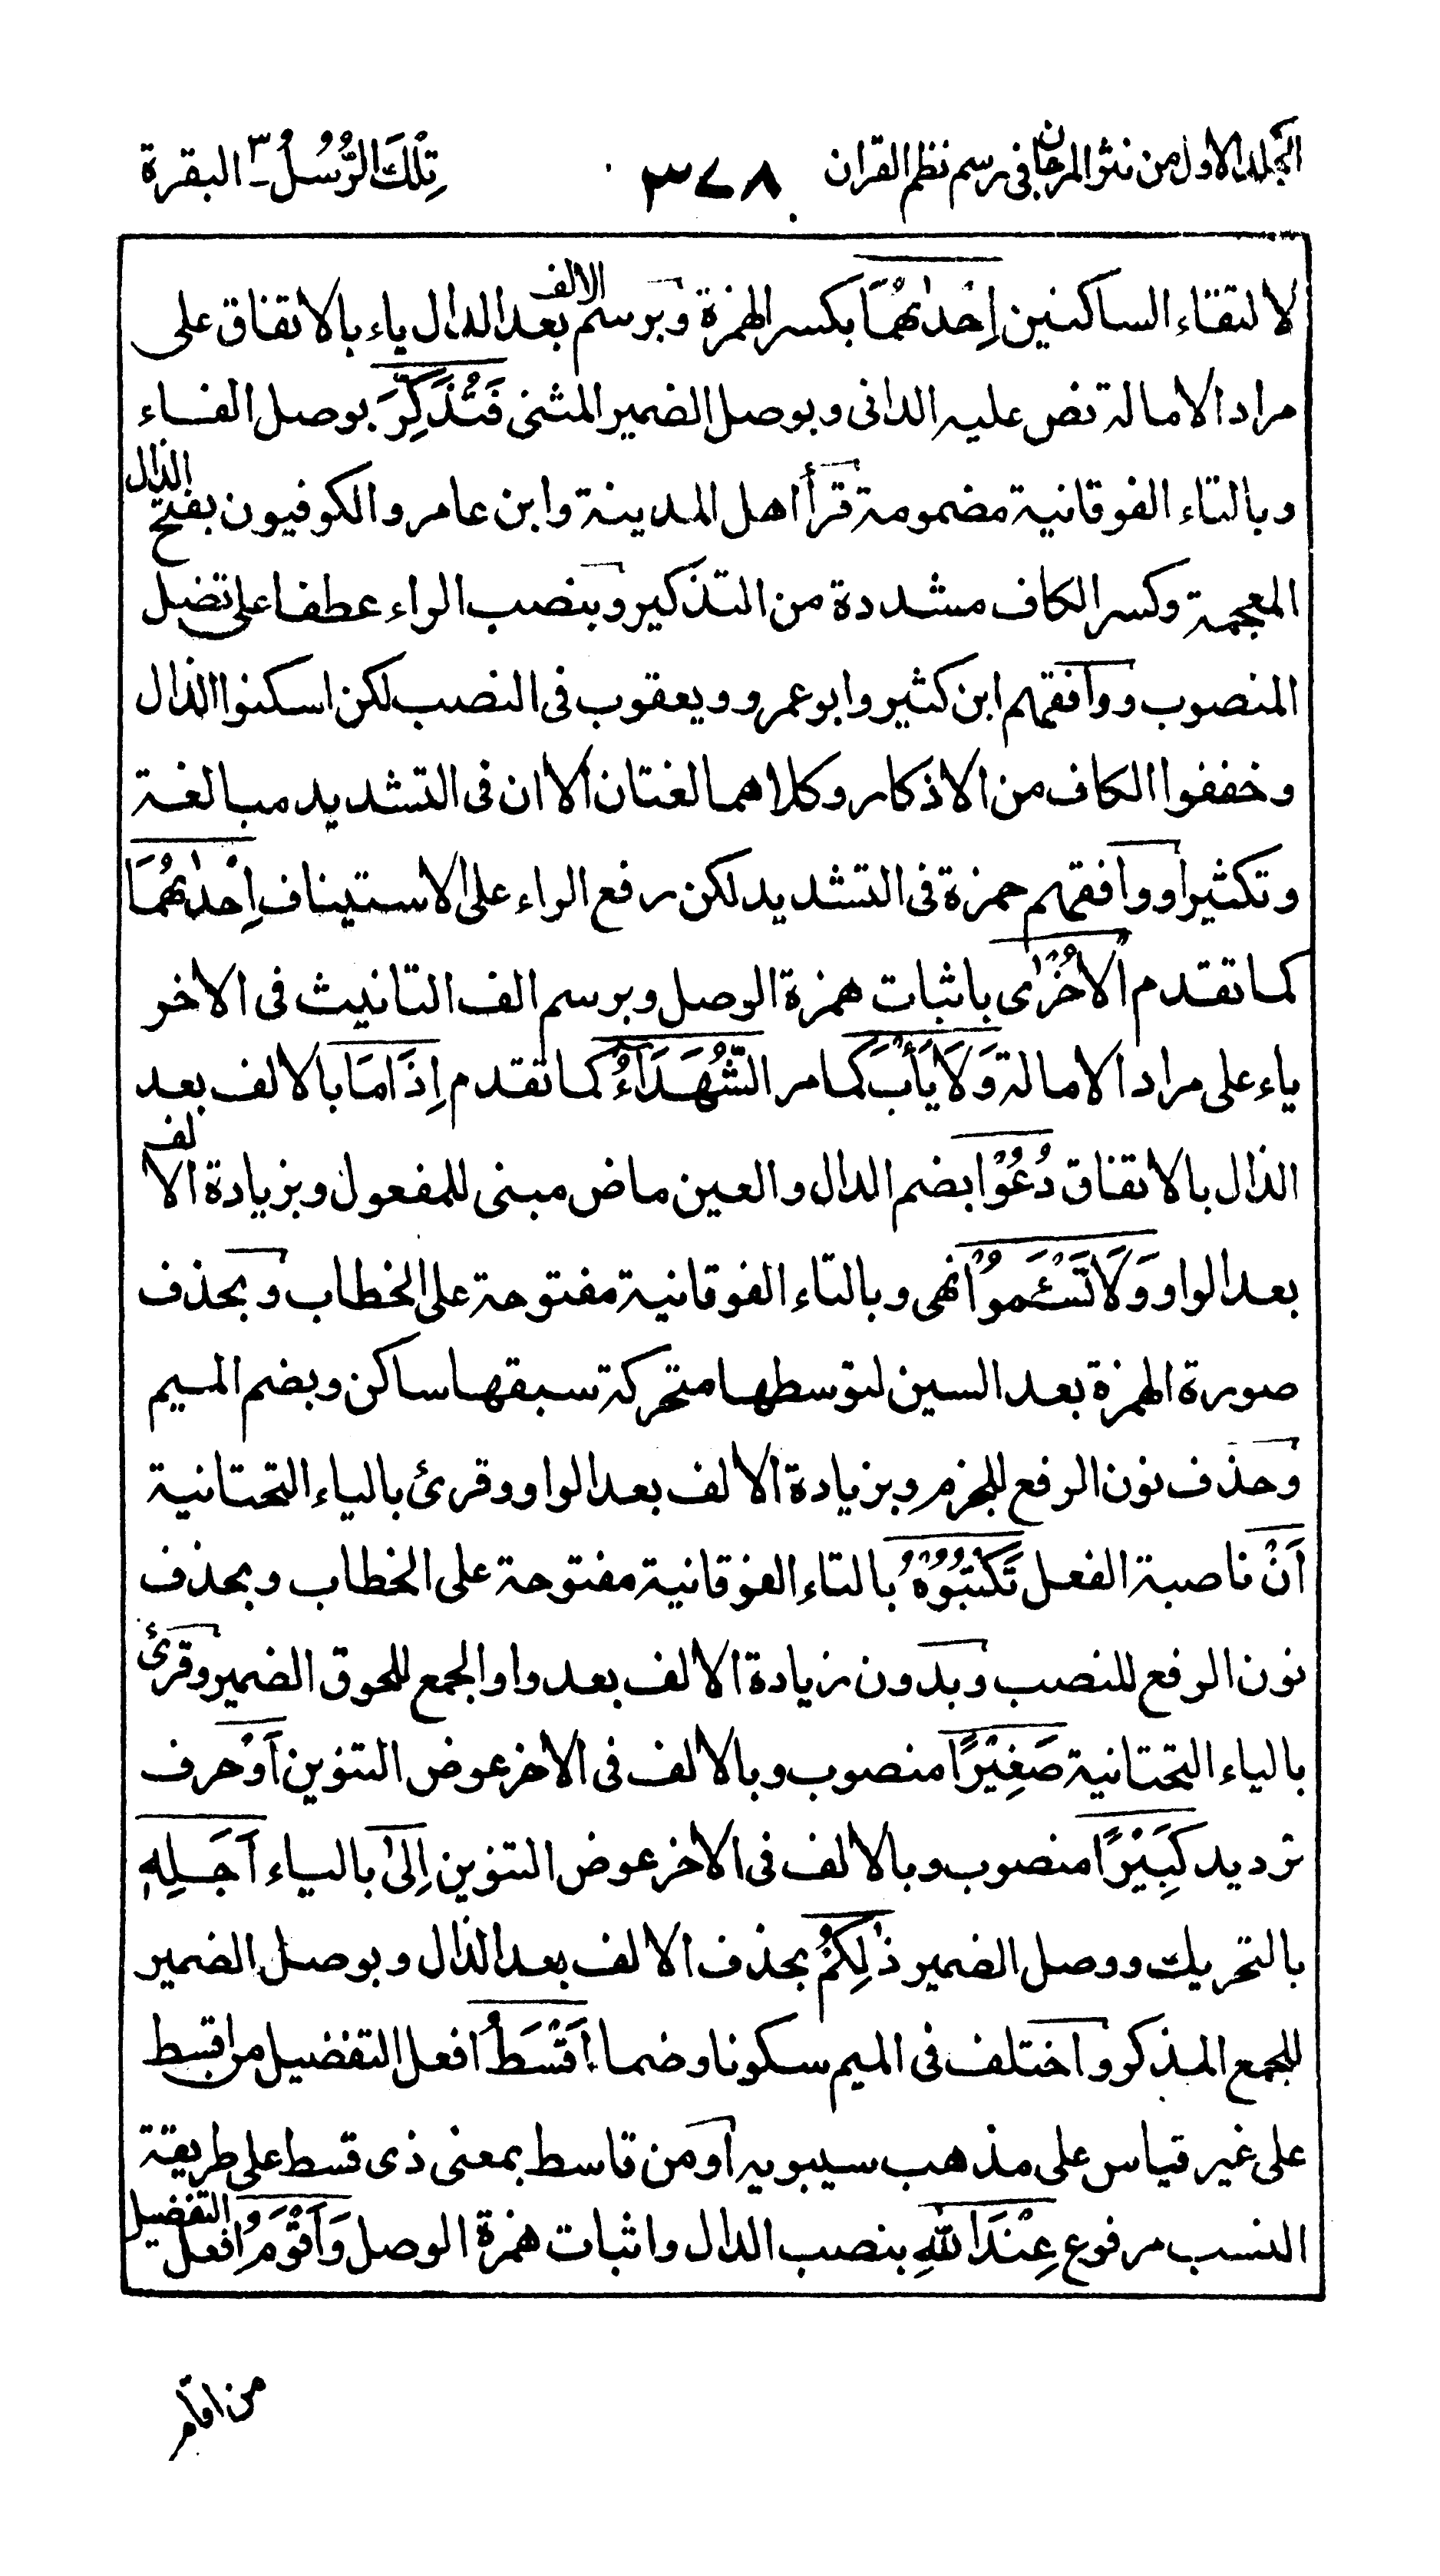 الجلد الاول من نثر المرجان فى رسم نظم القران ٣٧٨ تِلْكَ الرُّسُلُ ٣ - البقرة
لالتقاء الساكنين اِحْدٰىهُمَا بكسر الهمزة وبرسم الالف بعد الدال ياء بالاتفاق على
مراد الامالة نص عليه الدانى وبوصل الضمير المثنى فَتُذَكِّرَ بوصل الفاء
وبالتاء الفوقانية مضمومة قرأ اهل المدينة وابن عامر والكوفيون بفتح الذال
المعجمة وكسر الكاف مشددة من التذكير وبنصب الراء عطفا على تضل
المنصوب ووافقهم ابن كثير وابو عمرو ويعقوب فى النصب لكن اسكنوا الذال
وخففوا الكاف من الاذكار وكلاهما لغتان الا ان فى التشديد مبالغة
وتكثيرا ووافقهم حمزة فى التشديد لكن رفع الراء على الاستيناف اِحْدٰىهُمَا
كما تقدم الْاُخْرٰى باثبات همزة الوصل وبرسم الف التانيث فى الاخر
ياء على مراد الامالة وَلَا يَأْبَ كما مر الشُّهَدَاءُ كما تقدم اِذَا مَا بالالف بعد
الذال بالاتفاق دُعُوْا بضم الدال والعين ماض مبنى للمفعول وبزيادة الالف
بعد الواو وَلَا تَسْـَٔمُوْا نهى وبالتاء الفوقانية مفتوحة على الخطاب وبحذف
صورة الهمزة بعد السين لتوسطها متحركة سبقها ساكن وبضم الميم
وحذف نون الرفع للجزم وبزيادة الالف بعد الواو وقرئ بالياء التحتانية
اَنْ ناصبة الفعل تَكْتُبُوْهُ بالتاء الفوقانية مفتوحة على الخطاب وبحذف
نون الرفع للنصب وبدون زيادة الالف بعد واو الجمع للحوق الضمير وقرئ
بالياء التحتانية صَغِيْرًا منصوب وبالالف فى الاخر عوض التنوين اَوْ حرف
ترديد كَبِيْرًا منصوب وبالالف فى الاخر عوض التنوين اِلٰى بالياء اَجَلِهٖ
بالتحريك ووصل الضمير ذٰلِكُمْ بحذف الالف بعد الذال وبوصل الضمير
للجمع المذكر واختلف فى الميم سكونا وضما اَقْسَطُ افعل التفضيل من اقسط
على غير قياس على مذهب سيبويه او من قاسط بمعنى ذى قسط على طريقة
النسب مرفوع عِنْدَ اللّٰهِ بنصب الدال واثبات همزة الوصل وَاَقْوَمُ افعل التفضيل
من اقام